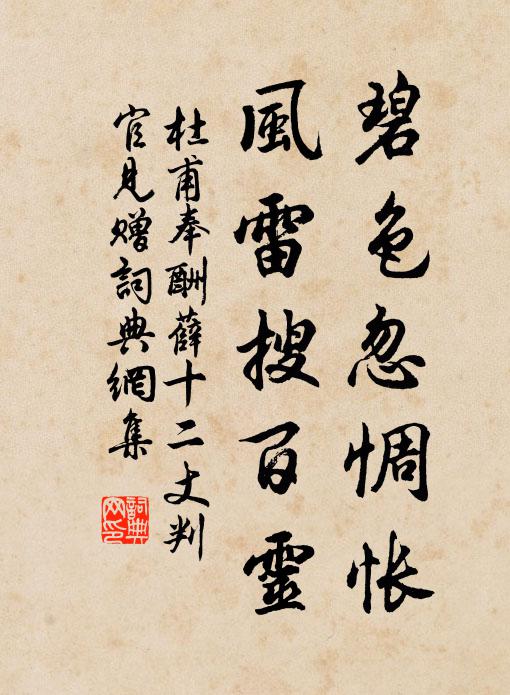 碧色忽惆怅
風雷搜百靈
杜甫奉酬薛十二丈判
官見贈詞典網集
詞典網印